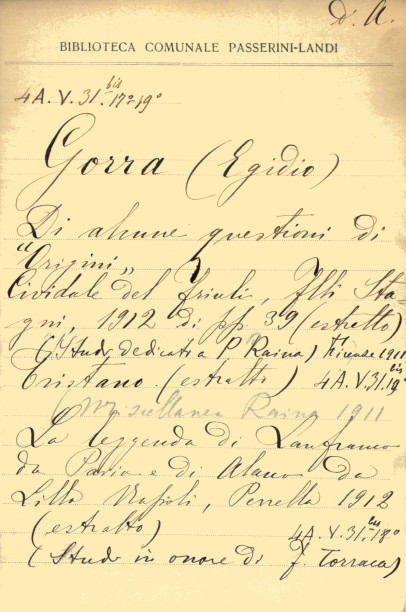 D. A.
BIBLIOTECA COMUNALE PASSERINI-LANDI
4A. V. 31 bis 17°-19°
Gorra (Egidio)
Di alcune questioni di
"Origini"
Cividale del Friuli, Flli Sta-
gni, 1912 di pp 39 (estratto)
(Studi dedicati a P Raina) Firenze 1911
Tristano (estratto) 4A. V. 31 bis 19°
(Miscellanea Raina 1911
La leggenda di Lanfranco
da Pavia e di Alano da
Lilla Napoli, Perrella 1912
(estratto) 4A. V. 31 bis 18°
(Studi in onore di F. Torraca)